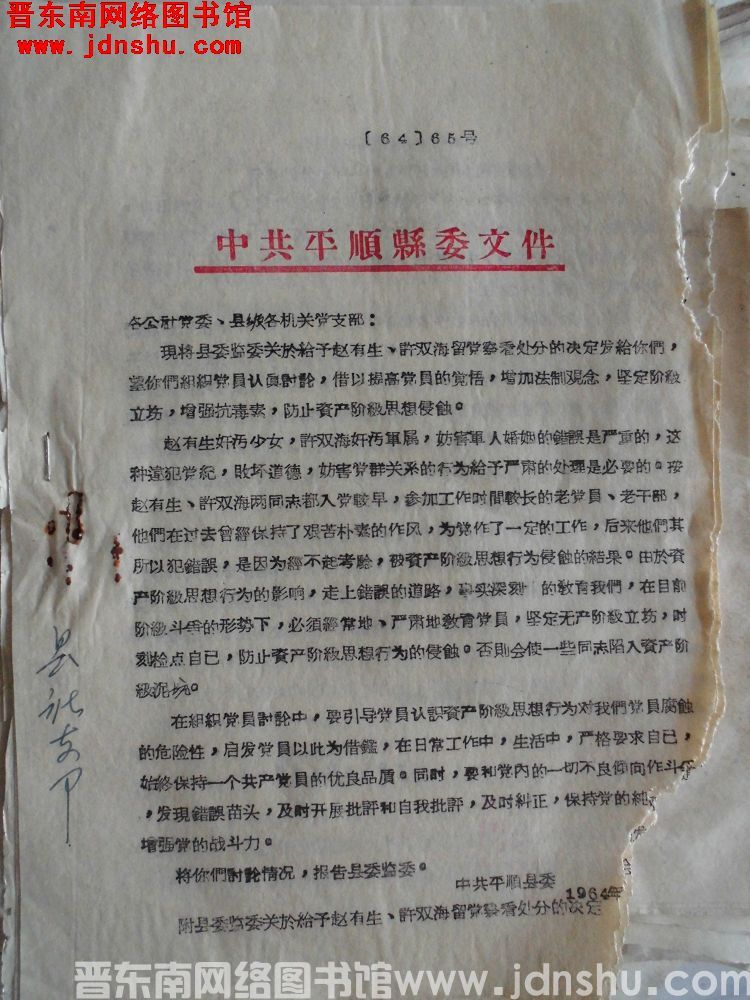 晋东南网络图书馆
www.jdnshu.com
〔64〕65号
中共平順縣委文件
各公社党委、县级各机关党支部：
現将县委监委关於給予赵有生、許双海留党察看处分的决定发給你們，
望你們組織党員认眞討論，借以提高党員的覚悟，增加法制观念，坚定阶級
立坊，增强抗毒素，防止資产阶級思想侵蝕。
赵有生奸污少女，許双海奸污軍属，妨害軍人婚姻的錯誤是严重的，这
种違犯党紀，敗坏道德，妨害党群关系的行为給予严肃的处理是必要的。按
赵有生、許双海两同志都入党較早，参加工作时間較长的老党員、老干部，
他們在过去曾經保持了艰苦朴素的作风，为党作了一定的工作，后来他們其
所以犯錯誤，是因为經不起考驗，被資产阶級思想行为侵蝕的結果。由於資
产阶級思想行为的影响，走上錯誤的道路，事实深刻的教育我們，在目前
阶級斗争的形势下，必須經常地、严肃地教育党員，坚定无产阶級立坊，时
刻检点自已，防止資产阶級思想行为的侵蝕。否則会使一些同志陷入資产阶
級泥坑。
在組織党員討論中，要引导党員认識資产阶級思想行为对我們党員腐蝕
的危险性，启发党員以此为借鑑，在日常工作中，生活中，严格要求自已，
始終保持一个共产党員的优良品質。同时，要和党内的一切不良傾向作斗
，发現錯誤苗头，及时开展批評和自我批評，及时糾正，保持党的純
增强党的战斗力。
将你們討論情况，报告县委监委。
中共平順县委
1964年
附县委监委关於給予赵有生、許双海留党察看处分的决定
县社支
晋东南网络图书馆www.jdnshu.com